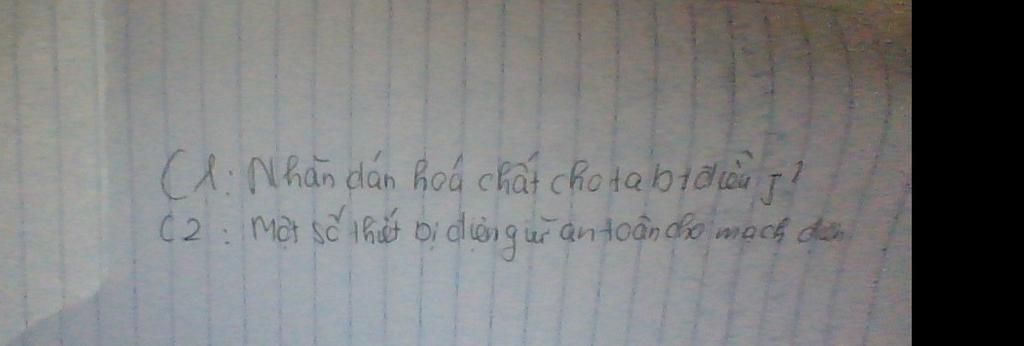 C1: Nhãn dán hoá chất cho ta bt điều j?
C2: Một số thiết bị điện giữ an toàn cho mạch điện